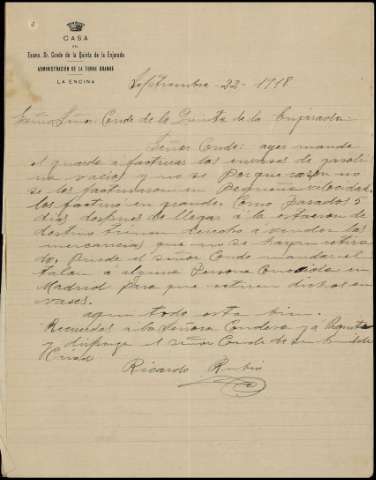 2
CASA
DEL
Excmo. Sr. Conde de la Quinta de la Enjarada
ADMINISTRACIÓN DE LA TORRE GRANDE
LA ENCINA
Septiembre - 22 - 1918
Señor Conde de la Quinta de la Enjarada
Señor Conde: ayer mande
el guarda a facturar los envases de gasoli
na vacios y no se porque razon no
se los facturaron en pequeña velocidad
los facturo en grande Como pasados 5
dias despues de llegar á la estacion de
destino tienen derecho a vender las
mercancias que no se hayan retira
do, Puede el señor Conde mandar el
talon a alguna persona en
Madrid para que retiren dichos en
vases.
aqui todo esta bien.
Recuerdos a la Señora Condesa y a
y disponga el señor Conde de su humilde
Criado
Ricardo Rubio